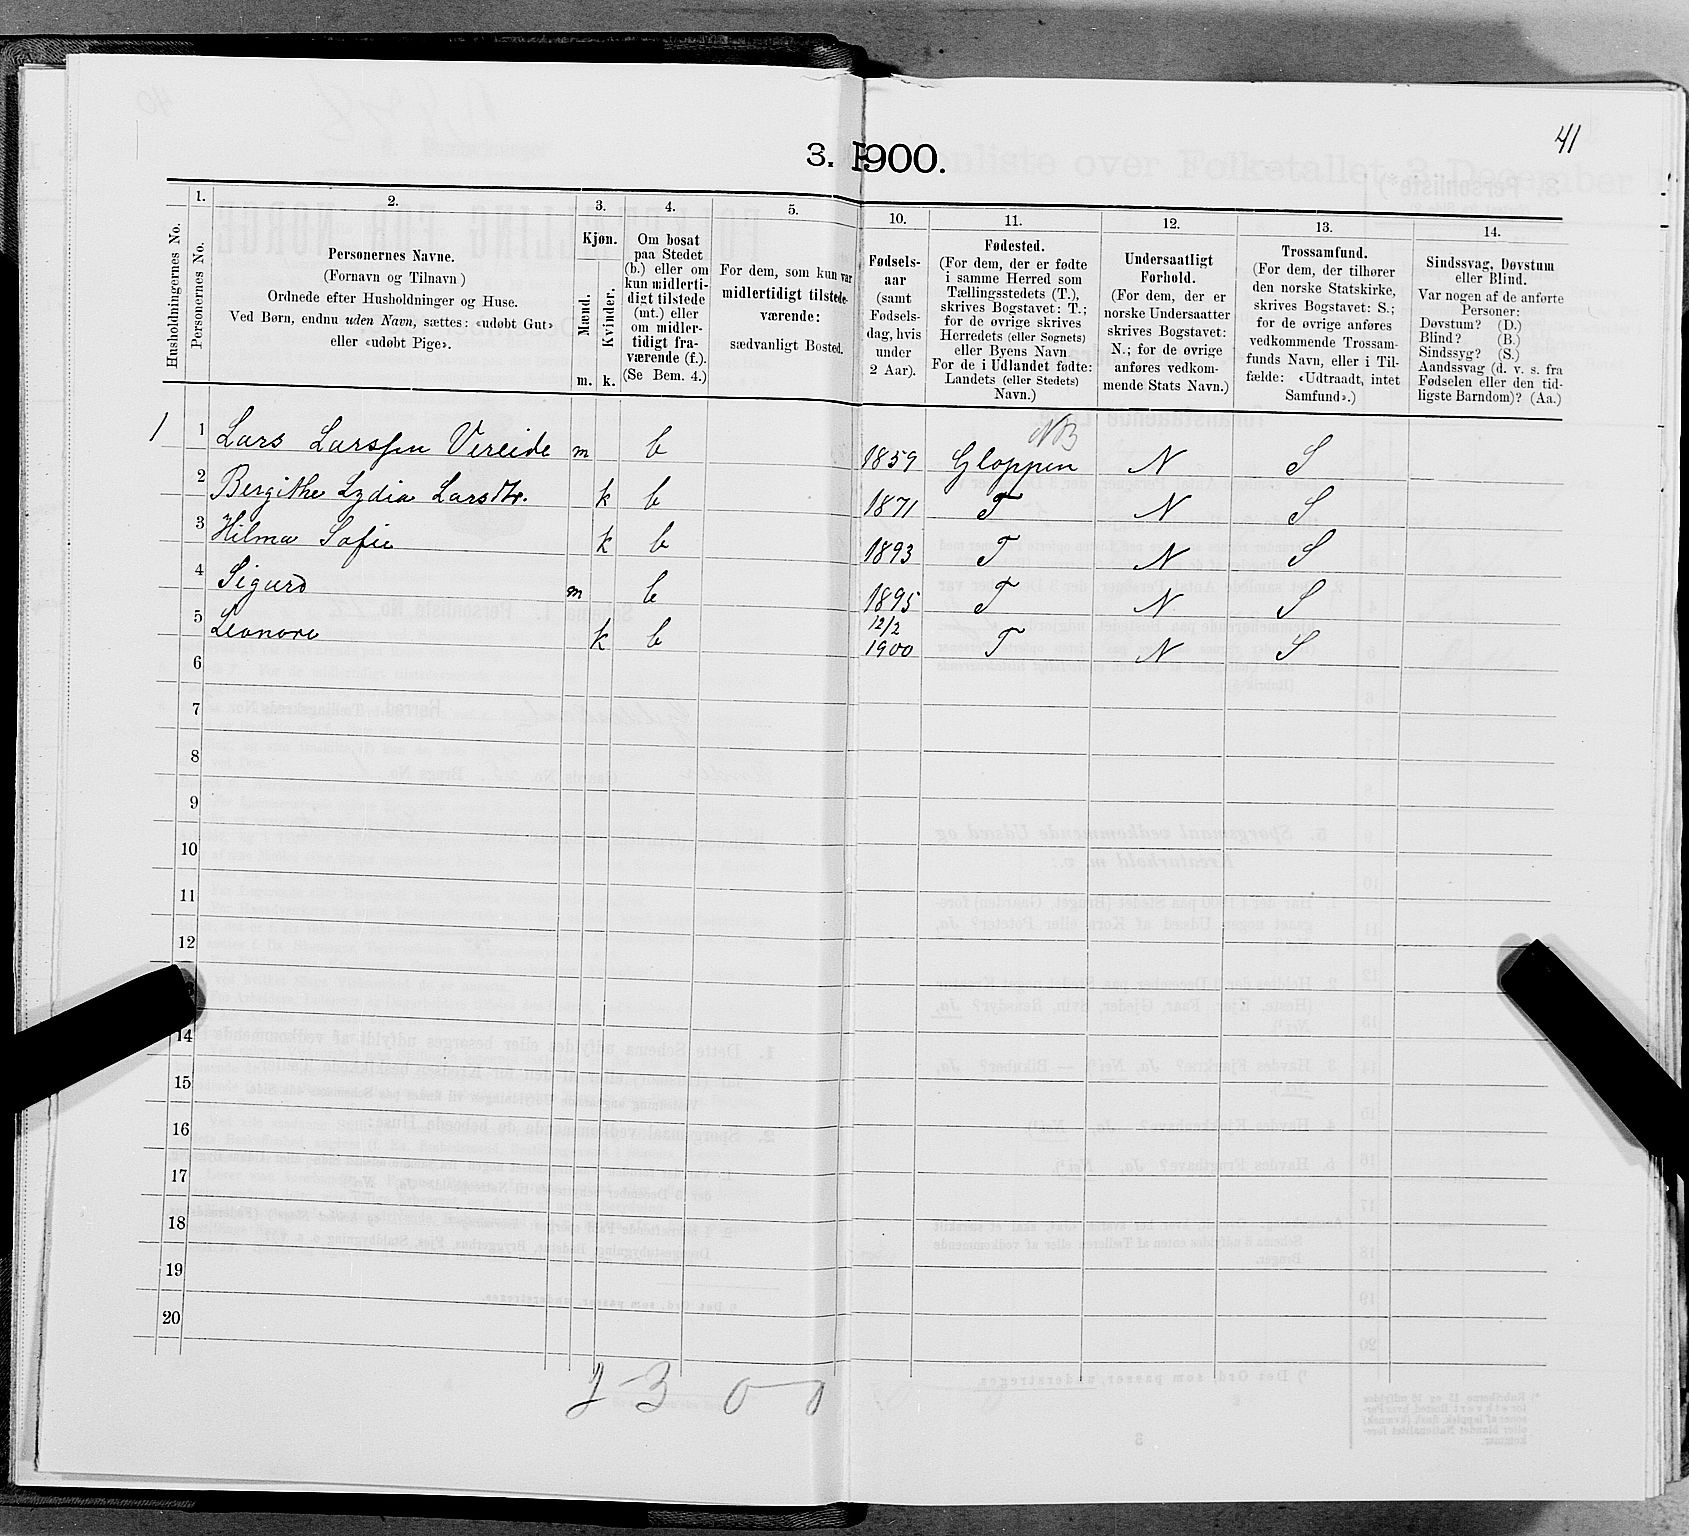 41
3. 1900.
Husholdningernes No.
1.
Personernes No.
2.
Personernes Navne.
(Fornavn og Tilnavn)
Ordnede efter Husholdninger og Huse.
Ved Børn, endnu uden Navn, sættes: «udøbt Gut»
eller «udøbt Pige».
3.
Kjøn.
Mænd.
Kvinder.
m.
k.
4.
Om bosat
paa Stedet
(b.) eller om
kun midlerti-
digt tilstede
(mt.) eller
om midler-
tidigt fra-
værende (f.).
(Se Bem. 4.)
5.
For dem, som kun var
midlertidigt tilstede-
værende:
sædvanligt Bosted.
10.
Fødsels-
aar
(samt
Fødsels-
dag, hvis
under
2 Aar).
11.
Fødested.
(For dem, der er fødte
i samme Herred som
Tællingsstedets (T.),
skrives Bogstavet: T.;
for de øvrige skrives
Herredets (eller Sognets)
eller Byens Navn
For de i Udlandet fødte:
Landets (eller Stedets)
Navn.)
12.
Undersaatligt
Forhold.
(For dem, der er
norske Undersaatter
skrives Bogstavet:
N.; for de øvrige
anføres vedkom-
mende Stats Navn.)
13.
Trossamfund.
(For dem, der tilhører
den norske Statskirke,
skrives Bogstavet: S.;
for de øvrige anføres
vedkommende Trossam-
funds Navn, eller i Til-
fælde: «Udtraadt, intet
Samfund».)
14.
Sindssvag, Døvstum
eller Blind.
Var nogen af de anførte
Personer:
Døvstum? (D.)
Blind? (B.)
Sindssyg? (S.)
Aandssvag (d. v. s. fra
Fødselen eller den tid-
ligste Barndom)? (Aa.)
NB
1 1 Lars Larssen Vereide m b 1859 Gloppen N S
2 Bergithe Lydia Larsdtr. k b 1871 T N S
3 Hilma Sofie k b 1893 T N S
4 Sigurd m b 1895 T N S
12/2
5 Leonore k b 1900 T N S
6
7
8
9
10
11
12
14
15
16
17
18
19
20
2-3 0-0